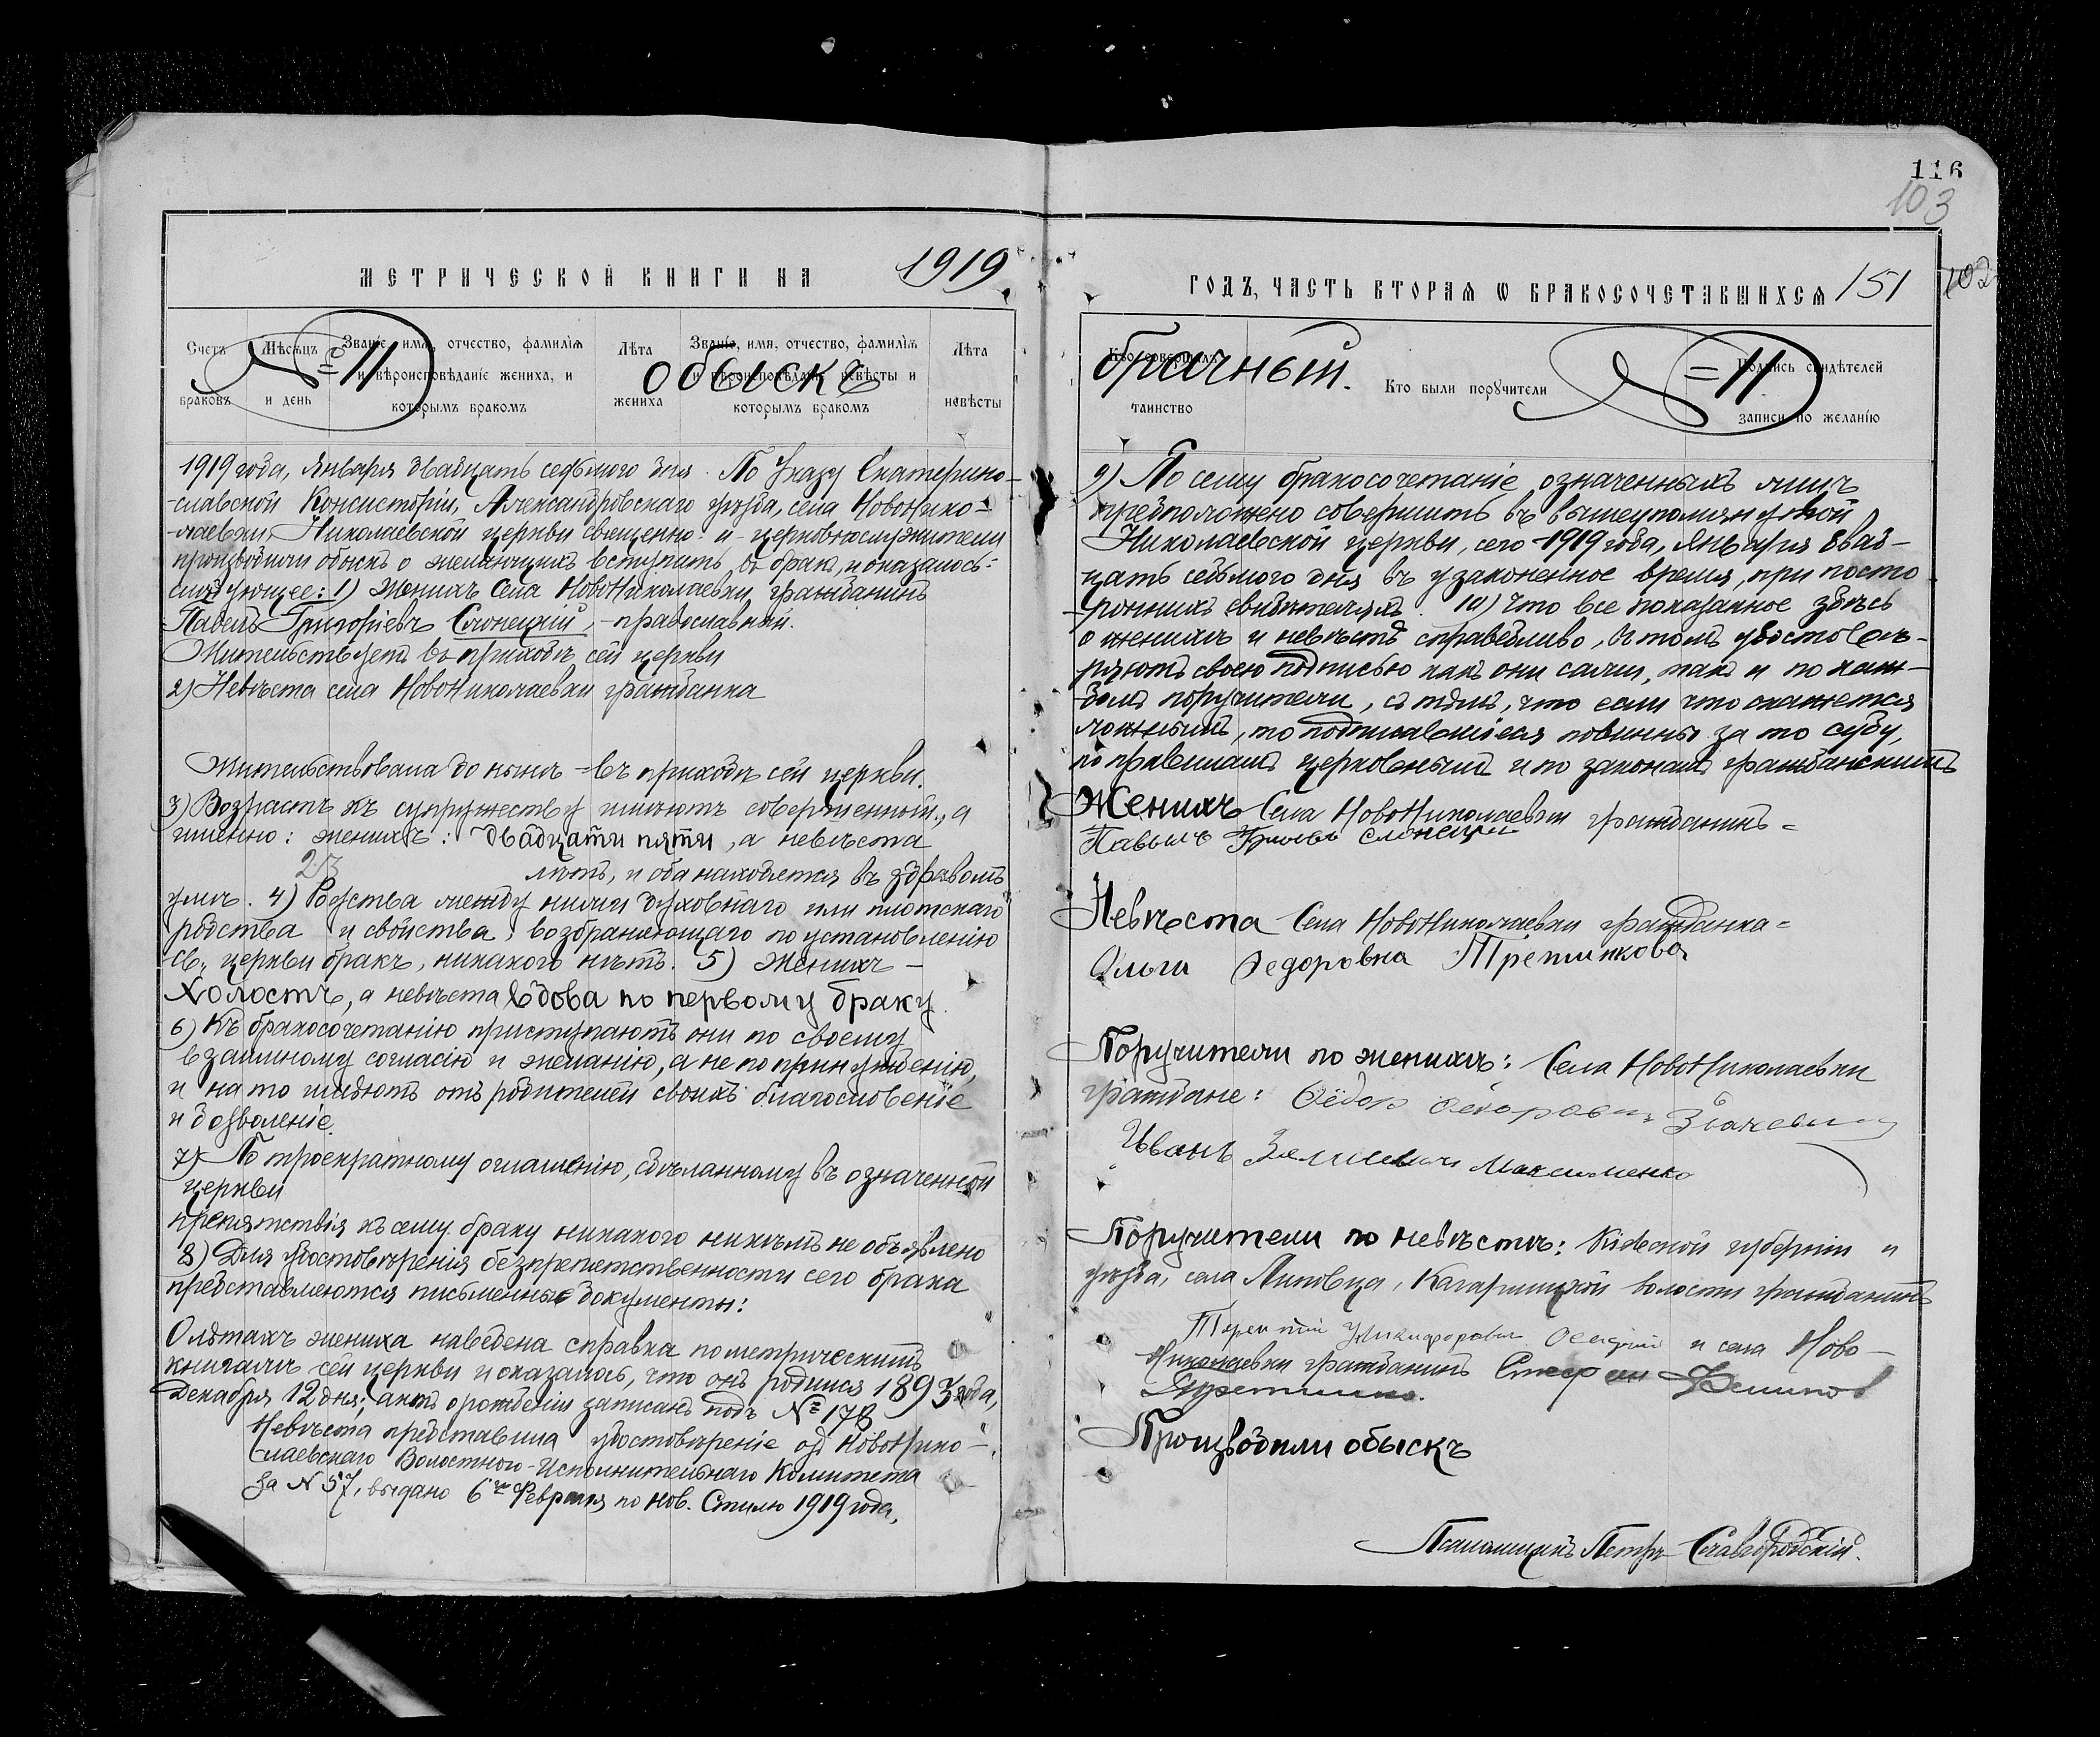 116
103
МЕТРИЧЕСКОЙ КНИГИ НА 1919
Счетъ браковъ
Мѣсяцъ и день
Званіе, имя, отчество, фамилія и вѣроисповѣданіе жениха, и которымъ бракомъ
Лѣта жениха
Званіе, имя, отчество, фамилія и вѣроисповѣданіе невѣсты и которымъ бракомъ
Лѣта невѣсты
№ 11 обыскъ
1919 года, Января двадцать седьмого дня. По Указу Екатерино-
-славской Консисторіи, Александровскаго уѣзда, села НовоНико-
-лаевки, Николаевской церкви священно- и -церковнослужители
производили обыскъ о желающихъ вступить въ бракъ, и оказалось:
слѣдующее: 1) Женихъ Села НовоНиколаевки, гражданинъ
Павелъ Григорьевъ Слонецкій, - православный.
Жительствуетъ въ приходѣ сей церкви
2) Невѣста села НовоНиколаевки гражданка
Жительствовала до нынѣ =въ приходѣ сей церкви.
3) Возрастъ къ супружеству имѣютъ совершенный, а
именно: женихъ: двадцати пяти, а невѣста
23 лѣтъ, и оба находятся въ здравомъ
умѣ. 4) Родства между ними духовнаго или плотскаго
родства и свойства, возбраняющаго по установленію
св. церкви бракъ, никакого нѣтъ. 5) Женихъ -
холостъ, а невѣста вдова по первому браку
6) Къ бракосочетанію приступаютъ они по своему
взаимному согласію и желанію, а не по принужденію,
и на то имѣютъ отъ родителей своихъ благословеніе
и дозволеніе.
7) По троекратному оглашенію, сдѣланному въ означенной
церкви
препятствія къ сему браку никакого никѣмъ не объявлено
8) Для удостовѣренія безпрепятственности сего брака
представляются письменные документы:
О лѣтахъ жениха наведена справка по метрическимъ
книгамъ сей церкви и оказалось, что онъ родился 1893 года,
Декабря 12 дня; актъ о рожденіи записанъ подъ № 178
Невѣста представила удостовѣреніе отъ НовоНико-
лаевскаго Волостного-Исполнительнаго Комитета
за N 57, выдано 6го Февраля по нов. Стилю 1919 года.
ГОДЪ, ЧАСТЬ ВТОРАЯ Ѡ БРАКОСОЧЕТАВШИХСЯ 151
102
Кто совершалъ таинство
Кто были поручители
Подпись свидѣтелей записи по желанію
брачный. № 11
9) По сему бракосочетаніе означенныхъ лицъ
предположено совершить въ вышеупомянутой
Николаевской церкви, сего 1919 года, Января двад-
цать седьмого дня въ узаконенное время, при посто
ронних свидѣтеляхъ. 10) Что все показанное здѣсь
о женихѣ и невѣстѣ справедливо, въ томъ удостовѣ-
ряютъ своею подписью какъ они сами, такъ и по каж-
дому поручители, съ тѣмъ, что если что окажется
ложнымъ, то подписавшіеся повинны за то суду,
по правиламъ церковнымъ и по законамъ гражданскимъ
Женихъ Села НовоНиколаевки гражданинъ =
Невѣста Села НовоНиколаевки гражданка =
Ольга Федоровна
Поручители по женихѣ: Села НовоНиколаевки
граждане: Фёдор
Иванъ Максименко
Поручители по невѣстѣ: Кіевской губерніи и
уѣзда, села Липовца, Кагарлицкой волости гражданинъ
и села Ново-
Николаевки гражданинъ
Производили обыскъ
Псаломщикъ Петръ Славгородскій.